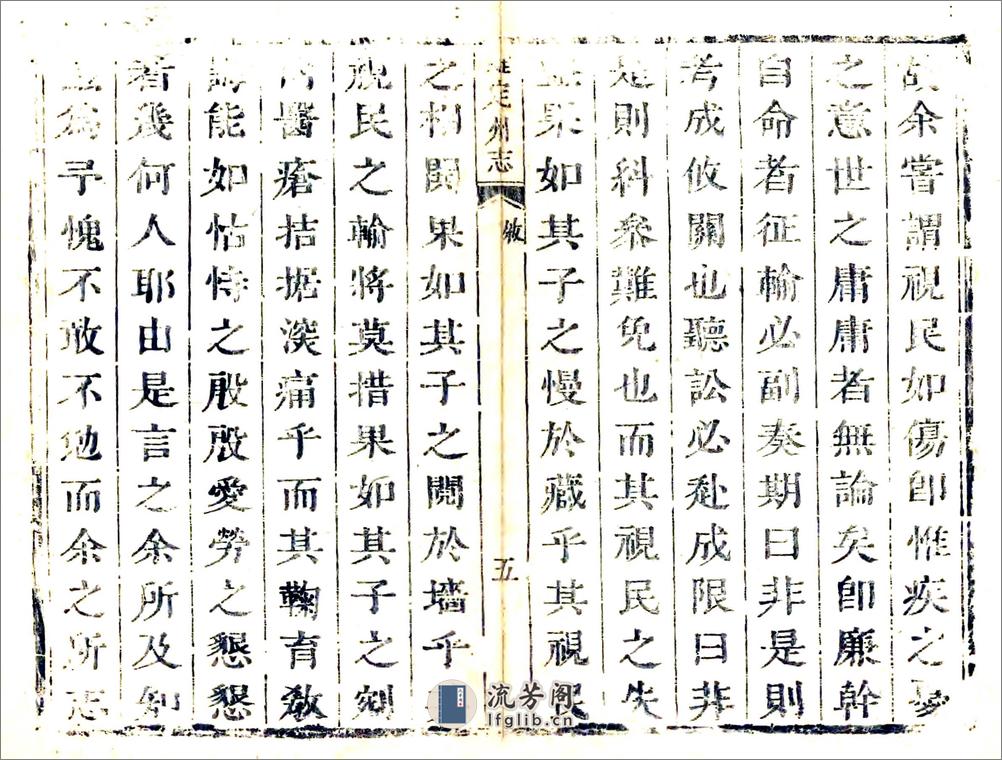 故余嘗謂視民如傷卽惟疾之憂
之意世之庸庸者無論矣卽廉幹
自命者征輸必副奏期曰非是則
考成攸關也聽訟必赴成限曰非
是則科叅難免也而其視民之失
果如其子之慢於藏乎其視民
直定州志
敘
五
之相鬩果如其子之鬩於墻乎
視民之輸將莫措果如其子之剜
肉醫瘡拮据深痛乎而其鞠育敎
誨能如怙恃之殷殷愛勞之懇懇
者幾何人耶由是言之余所及知
爲予愧不敢不勉而余之所志
流芳阁
lfglib.cn